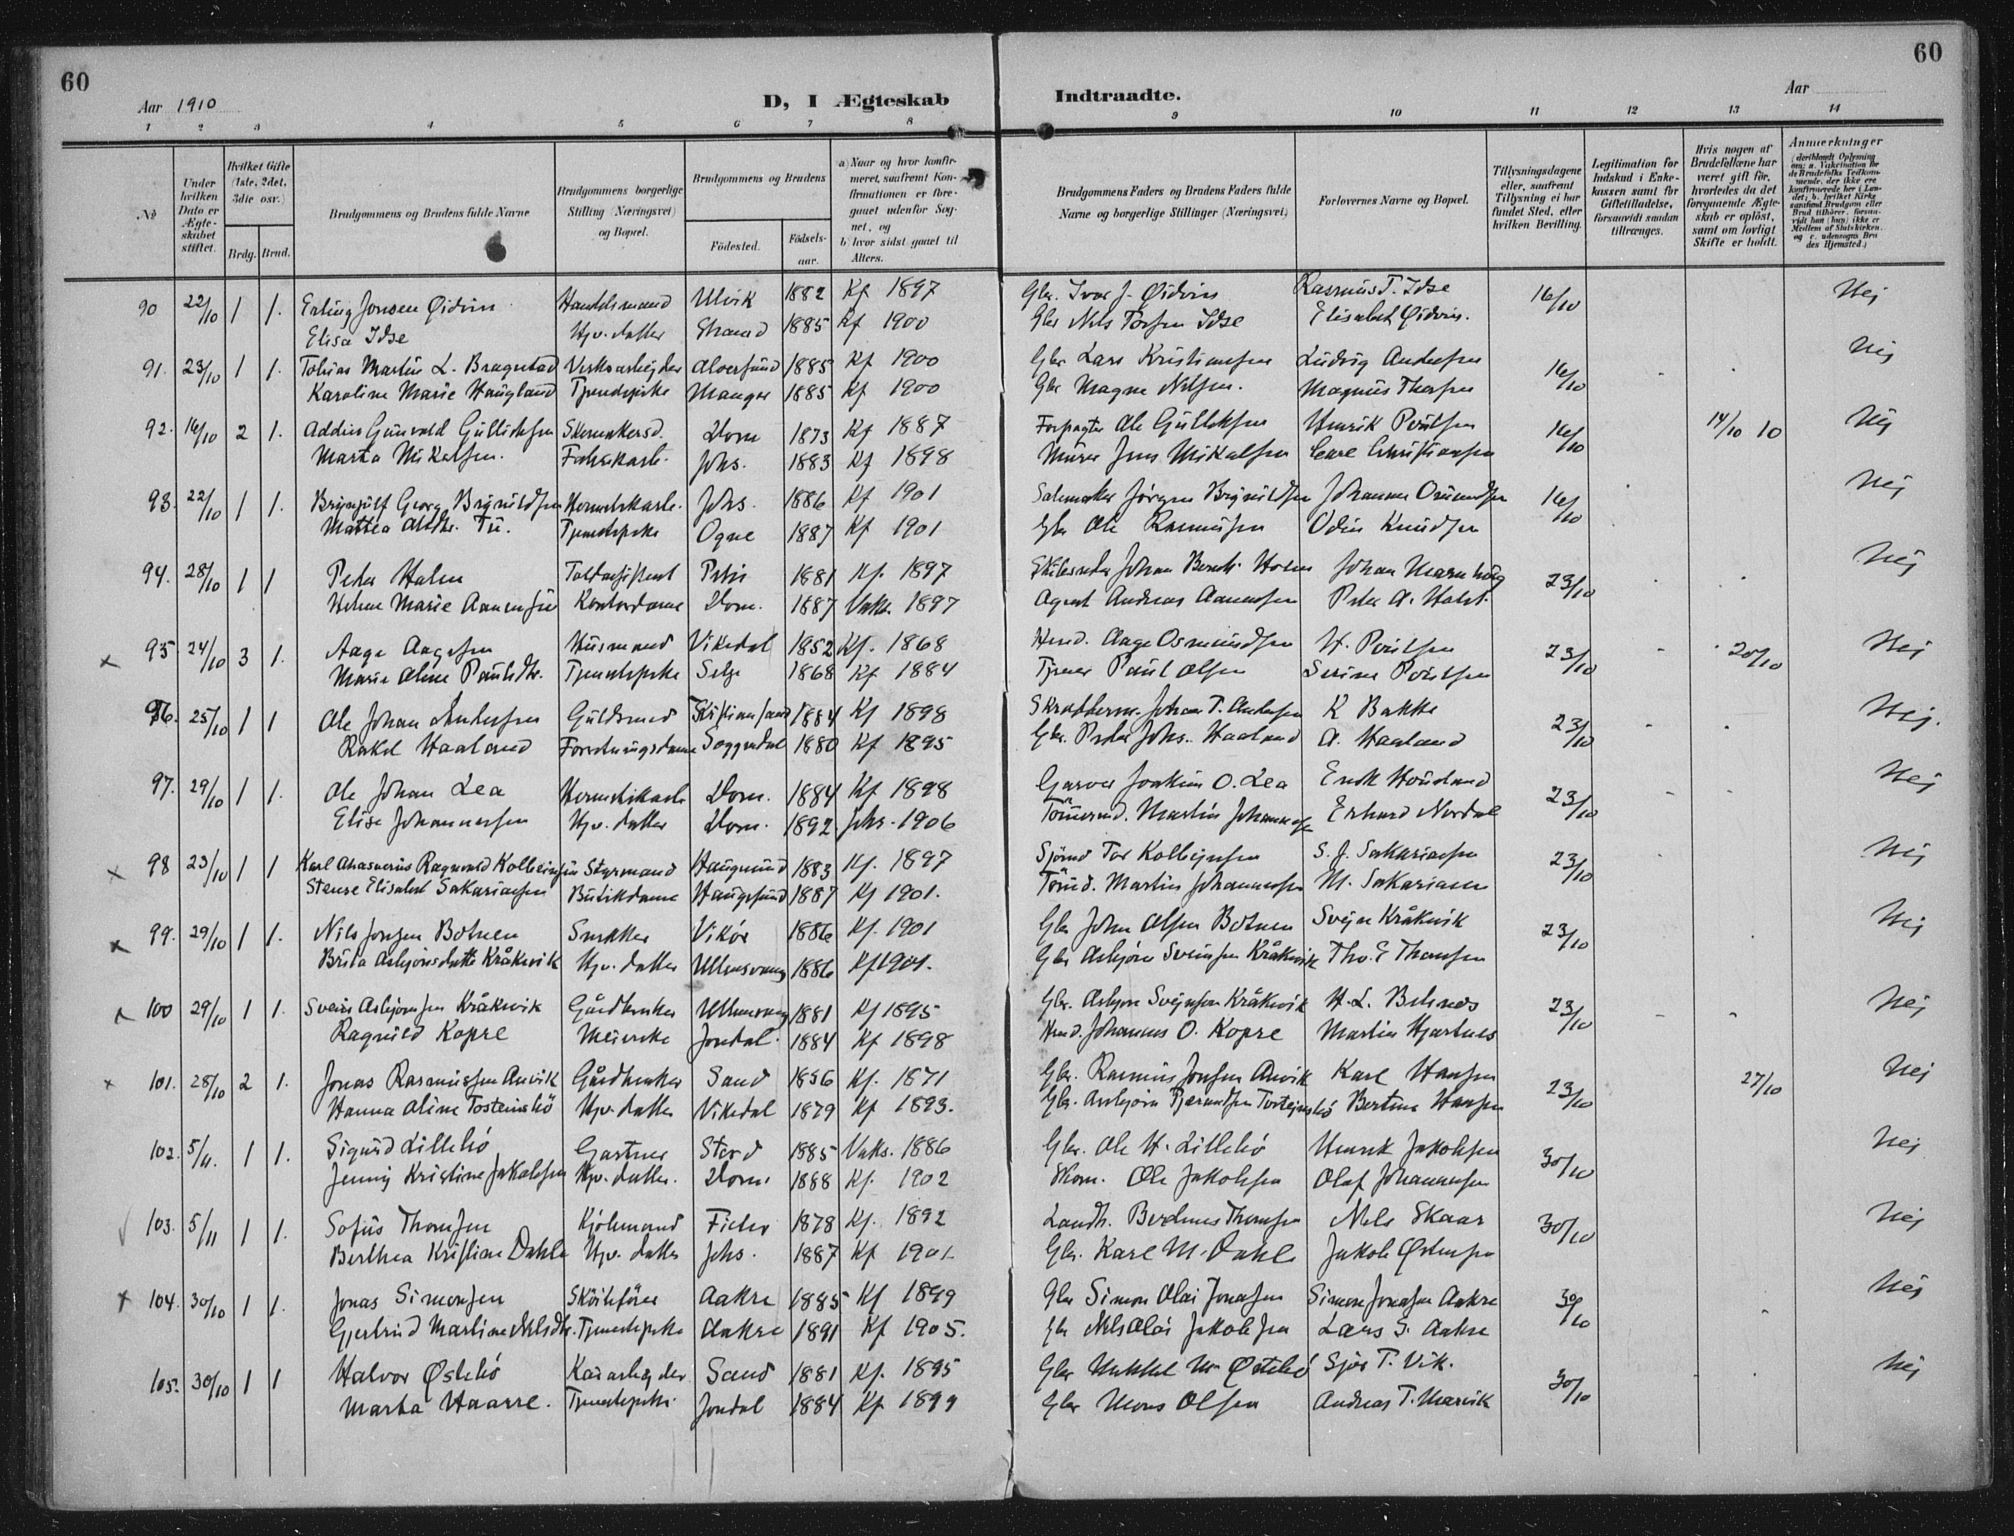 60
60
Aar 1910
D, I Ægteskab
Indtraadte.
Aar
1 2 3 4 5 6 7 8 9 10 11 12 13 14
№
Under hvilken Dato er Ægteskabet stiftet.
Hvilket Gifte (1ste, 2det, 3die osv.)
Brdg. Brud.
Brudgommens og Brudens fulde Navne
Brudgommens borgerlige Stilling (Næringsvei) og Bopæl.
Brudgommens og Brudens
Fødested.
Fødselsaar.
a) Naar og hvor konfirmeret, saafremt Konfirmationen er foregaaet udenfor Sognet, og
b) hvor sidst gaaet til Alters.
Brudgommens Faders og Brudens Faders fulde Navne og borgerlige Stillinger (Næringsvei)
Forlovernes Navne og Bopæl.
Tillysningsdagene eller, saafremt Tillysning ei har fundet Sted, efter hvilken Bevilling.
Legitimation for Indskud i Enkekassen samt for Giftetilladelse, forsaavidt saadan tiltrænges.
Hvis nogen af Brudefolkene har været gift før, hvorledes da det foregaaende Ægteskab er opløst, samt om lovligt Skifte er holdt.
Anmærkninger
90 22/10 1 1. Erling Jonsen Øidvin Handelsmand Ulvik 1882 Kf 1897 Gbr. Ivar J. Øidvin Rasmus T. Idse 16/10 Nej
Elisa Idse Hjv. datter Strand 1885 Kf 1900 Gbr Nils Torsen Idse Elisabet Øidvin.
91. 23/10 1 1. Tobias Martin L. Bragstad Verksarbejder Alversund 1885 Kf 1900 Gbr Lars Kristiansen Ludvig Andersen 16/10 Nej
Karoline Marie Haugland Tjenestepike Manger 1885 Kf 1900 Gbr Magne Nilsen. Magnus Thorsen
92. 16/10 2 1. Gunvald Gulliksen Skomakersv. Dom 1873 Kf 1887 Forpagter Ole Gulliksen Henrik Poulsen 16/10 14/10 10 Nej
Marta Mikalsen. Fabrikarb. Johs. 1883 Kf 1898 Murer Jens Mikalsen Carl Christiansen
93. 22/10 1 1. Brynjulf Georg Brynildsen Hermetikarb. Johs. 1886 Kf 1901 Salmaker Jørgen Brynildsen Johannes Osmundsen 16/10 Nej
Mattea Tu. Tjenestepike Ogne 1887 Kf 1901 Gbr Ole Rasmussen Odin Knudsen
94. 28/10 1 1 Peter Holm Toldassistent Petri 1881 Kf. 1897 Johan Bernh. Holm Johan Marnburg 23/10 Nej
Helene Marie Aanensen Kontordame Dom. 1887 Vaks. 1897 Agent Andreas Aanensen Peter A. Holst.
95. 24/10 3 1. Aage Aagesen Husmand Vikedal 1852 Kf. 1868 Hmd. Aage Osmundsen H. Poulsen 23/10 20/10 Nej
Marie Oline Paulsdtr. Tjenestepike Selje 1868 Kf 1884 Tjener Paul Olsen Serine Poulsen
96. 25/10 1 1 Ole Johan Andersen Guldsmed Kristiansand 1884 Kf 1898 Skrædderm. Johan P. Andersen K Bakke 23/10 Nej.
Rakel Haaland Forretningsdame Soggendal 1880 Kf 1895 Gbr. Peder Johs. Haaland A. Haaland
97. 29/10 1 1. Ole Johan Lea Hermetikarb Dom. 1884 Kf 1898 Garver Joakim O. Lea Enok Houland 23/10 Nej
Elise Johannessen Hjv. datter Dom. 1892 Johs. 1906 Tømmermd. Martin Johannessen Erhard Nordal
98 23/10 1 1 Karl Ahasverus Ragnvald Kolbeinsen Styrmand Haugesund 1883 Kf. 1897 Sjømd Tor Kolbejnsen S. J. Sakariasen 23/10 Nej
Stense Elisabet Sakariassen Butikdame Haugesund 1887 Kf 1901. Tømd. Martin Johannessen M. Sakariasen
99. 29/10 1 1. Nils Jonsen Botnen Snekker Vikør 1886 Kf. 1901 Gbr John Olsen Botnen Svejn Kråkevik 23/10 Nej
Brita Asbjørnsdatter Kråkevik Hjv. datter Ullensvang 1886 Kf 1901. Gbr Asbjørn Sveinsen Kråkevik Tho. E Thomsen
100 29/10 1 1. Svein Asbjørnsen Kråkevik Gårdbruker Ullensvang 1881 Kf 1895 Gbr. Asbjørn Svejnsen Kråkevik H. L. Belsnes 23/10 Nej
Ragnild Kopre Meierske Jondal. 1884 Kf 1898 Hmd. Johannes O. Kopre Martin Hjartnes
101. 28/10 2 1. Jonas Rasmussen Anvik Gårdbruker Sand 1856 Kf. 1871 Gbr. Rasmus Jonsen Anvik Karl Hansen 23/10 27/10 Nej
Hanna Oline Tosteinsbø Hjv. datter Vikedal 1879 Kf 1893. Gbr. Asbjørn Tostejnsbø Bertine Hansen
102. 5/11. 1 1. Sigurd Lillebø Gartner Stord 1885 Vaks. 1886 Gbr. Ole H. Lillebø Henrik Jakobsen 30/10 Nej
Jenny Kristine Jakobsen Hjv. datter. Dom. 1888 Kf. 1902 Skom. Ole Jakobsen Olaf Johannesen
103. 5/11 1 1. Sofus Thomsen Kjøbmand Fister 1878 Kf. 1892 Landh. Berdines Thomsen Nels Skaar 30/10 Nej
Berthea Kristine Dahle Hjv. datter Johs. 1887 Kf 1901 Gbr. Karl M. Dahle Jakob Østensen
104. 30/10 1 1. Jonas Simonsen Skøitefører Aakre 1885 Kf 1899 Gbr Simon Olai Jonassen Simon Jonassen Aakre 30/10 Nej
Gjertrud Martine Nilsdtr. Tjenestepike Aakre 1891 Kf 1905. Gbr Nils Olai Jakobsen Lars S. Aakre
105. 30/10 1 1 Halvor Østebø Kaiarbejder Sand 1881 Kf. 1895 Gbr Mikkel M. Østebø Sjur T. Vik. 30/10 Nej
Marta Haarre. Tjenestepike. Jondal 1884 Kf 1899 Gbr Mons Olsen Andreas T. Marvik